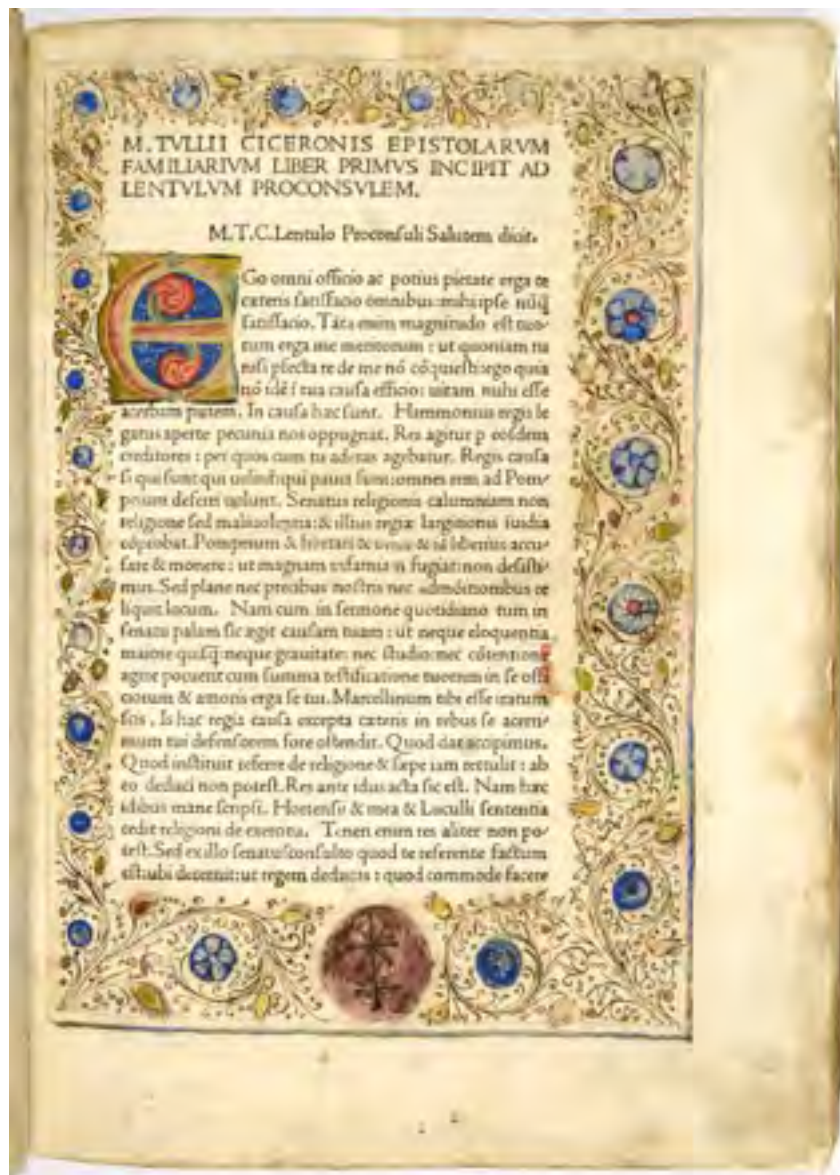 M.TVLLII CICERONIS EPISTOLARVM
FAMILIARIVM LIBER PRIMVS INCIPIT AD
LENTVLVM PROCONSVLEM.
M.T.C.Lentulo Proconſuli Salutem dicit.
EGo omni officio ac potius pietate erga te
cæteris ſatiſfacio omnibus:mihi ipſe nūq̄
ſatiſfacio. Tāta enim magnitudo eſt tuo⸗
rum erga me meritorum : ut quoniam tu
niſi pſecta re de me nō cōquieſti:ego quia
nō idē ī tua cauſa efficio: uitam mihi eſſe
acerbam putem. In cauſa hæc ſunt. Hammonius regis le
gatus aperte pecunia nos oppugnat. Res agitur p eoſdem
creditores : per quos cum tu aderas agebatur. Regis cauſa
ſi qui ſunt qui uelint:qui pauci ſunt:omnes rem ad Pom⸗
peium deferri uolunt. Senatus religionis calumniam non
religione ſed maliuolentia:& illius regiæ largitionis īuidia
cōprobat. Pompeium & hortari & & id liberius accu⸗
ſare & monere : ut magnam īfamiam fugiat:non deſiſti⸗
mus. Sed plane nec precibus noſtris nec admōitionibus re
liquit locum. Nam cum in ſermone quotidiano tum in
ſenatu palam ſic ægit cauſam tuam : ut neque eloquentia
maiore quiſq̄:neque grauitate: nec ſtudio:nec cōtentione
agere potuerit cum ſumma teſtificatione tuorum in ſe offi
ciorum & amoris erga ſe tui. Marcellinum tibi eſſe iratum
ſcis . Is hac regia cauſa excepta cæteris in rebus ſe acerri⸗
mum tui defenſorem fore oſtendit. Quod dat accipimus.
Quod inſtituit referre de religione & ſæpe iam rettulit : ab
eo deduci non poteſt. Res ante idus acta ſic eſt. Nam hæc
idibus mane ſcripſi. Hortenſii & mea & Luculli ſententia
cedit religioni de exercitu. Teneri enim res aliter non po⸗
teſt. Sed ex illo ſenatuſconſulto quod te referente factum
eſt:ubi decernit:ut regem deducas : quod commode facere